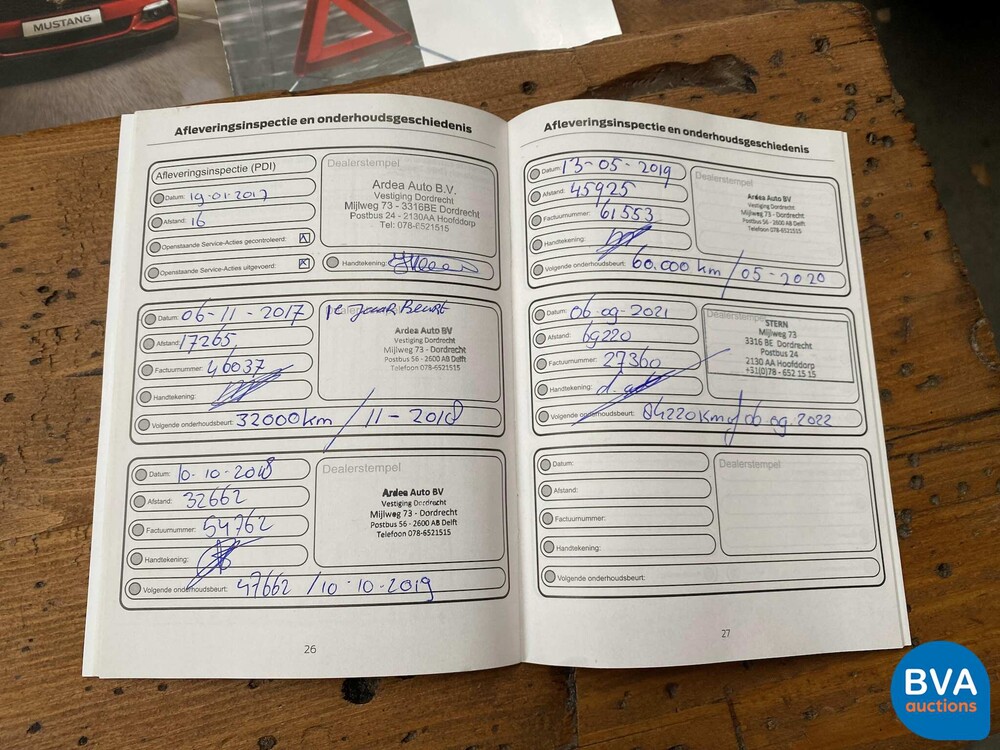 MUSTANG
Afleveringsinspectie en onderhoudsgeschiedenis
Afleveringsinspectie (PDI)
Datum: 19-01-2017
Afstand: 16
Openstaande Service-Acties gecontroleerd:
Openstaande Service-Acties uitgevoerd:
Dealerstempel
Ardea Auto B.V.
Vestiging Dordrecht
Mijlweg 73 - 3316BE Dordrecht
Postbus 24 - 2130AA Hoofddorp
Tel: 078-6521515
Handtekening:
Datum: 06-11-2017
Afstand: 17265
Factuurnummer: 46037
Handtekening:
Volgende onderhoudsbeurt: 32000km / 11-2018
1e jaar Beurt
Ardea Auto BV
Vestiging Dordrecht
Mijlweg 73 - Dordrecht
Postbus 56 - 2600 AB Delft
Telefoon 078-6521515
Datum: 10-10-2018
Afstand: 32662
Factuurnummer: 54762
Handtekening:
Volgende onderhoudsbeurt: 47662 / 10-10-2019
Dealerstempel
Ardea Auto BV
Vestiging Dordrecht
Mijlweg 73 - Dordrecht
Postbus 56 - 2600 AB Delft
Telefoon 078-6521515
26
Afleveringsinspectie en onderhoudsgeschiedenis
Datum: 13-05-2019
Afstand: 45925
Factuurnummer: 61553
Handtekening:
Volgende onderhoudsbeurt: 60.000 km / 05-2020
Dealerstempel
Ardea Auto BV
Vestiging Dordrecht
Mijlweg 73 - Dordrecht
Postbus 56 - 2600 AB Delft
Telefoon 078-6521515
Datum: 06-09-2021
Afstand: 69220
Factuurnummer: 27360
Handtekening:
Volgende onderhoudsbeurt: 84220 Km / 06-09-2022
Dealerstempel
STERN
Mijlweg 73
3316 BE Dordrecht
Postbus 24
2130 AA Hoofddorp
+31(0)78 - 652 15 15
Datum:
Afstand:
Factuurnummer:
Handtekening:
Volgende onderhoudsbeurt:
Dealerstempel
27
BVA
auctions